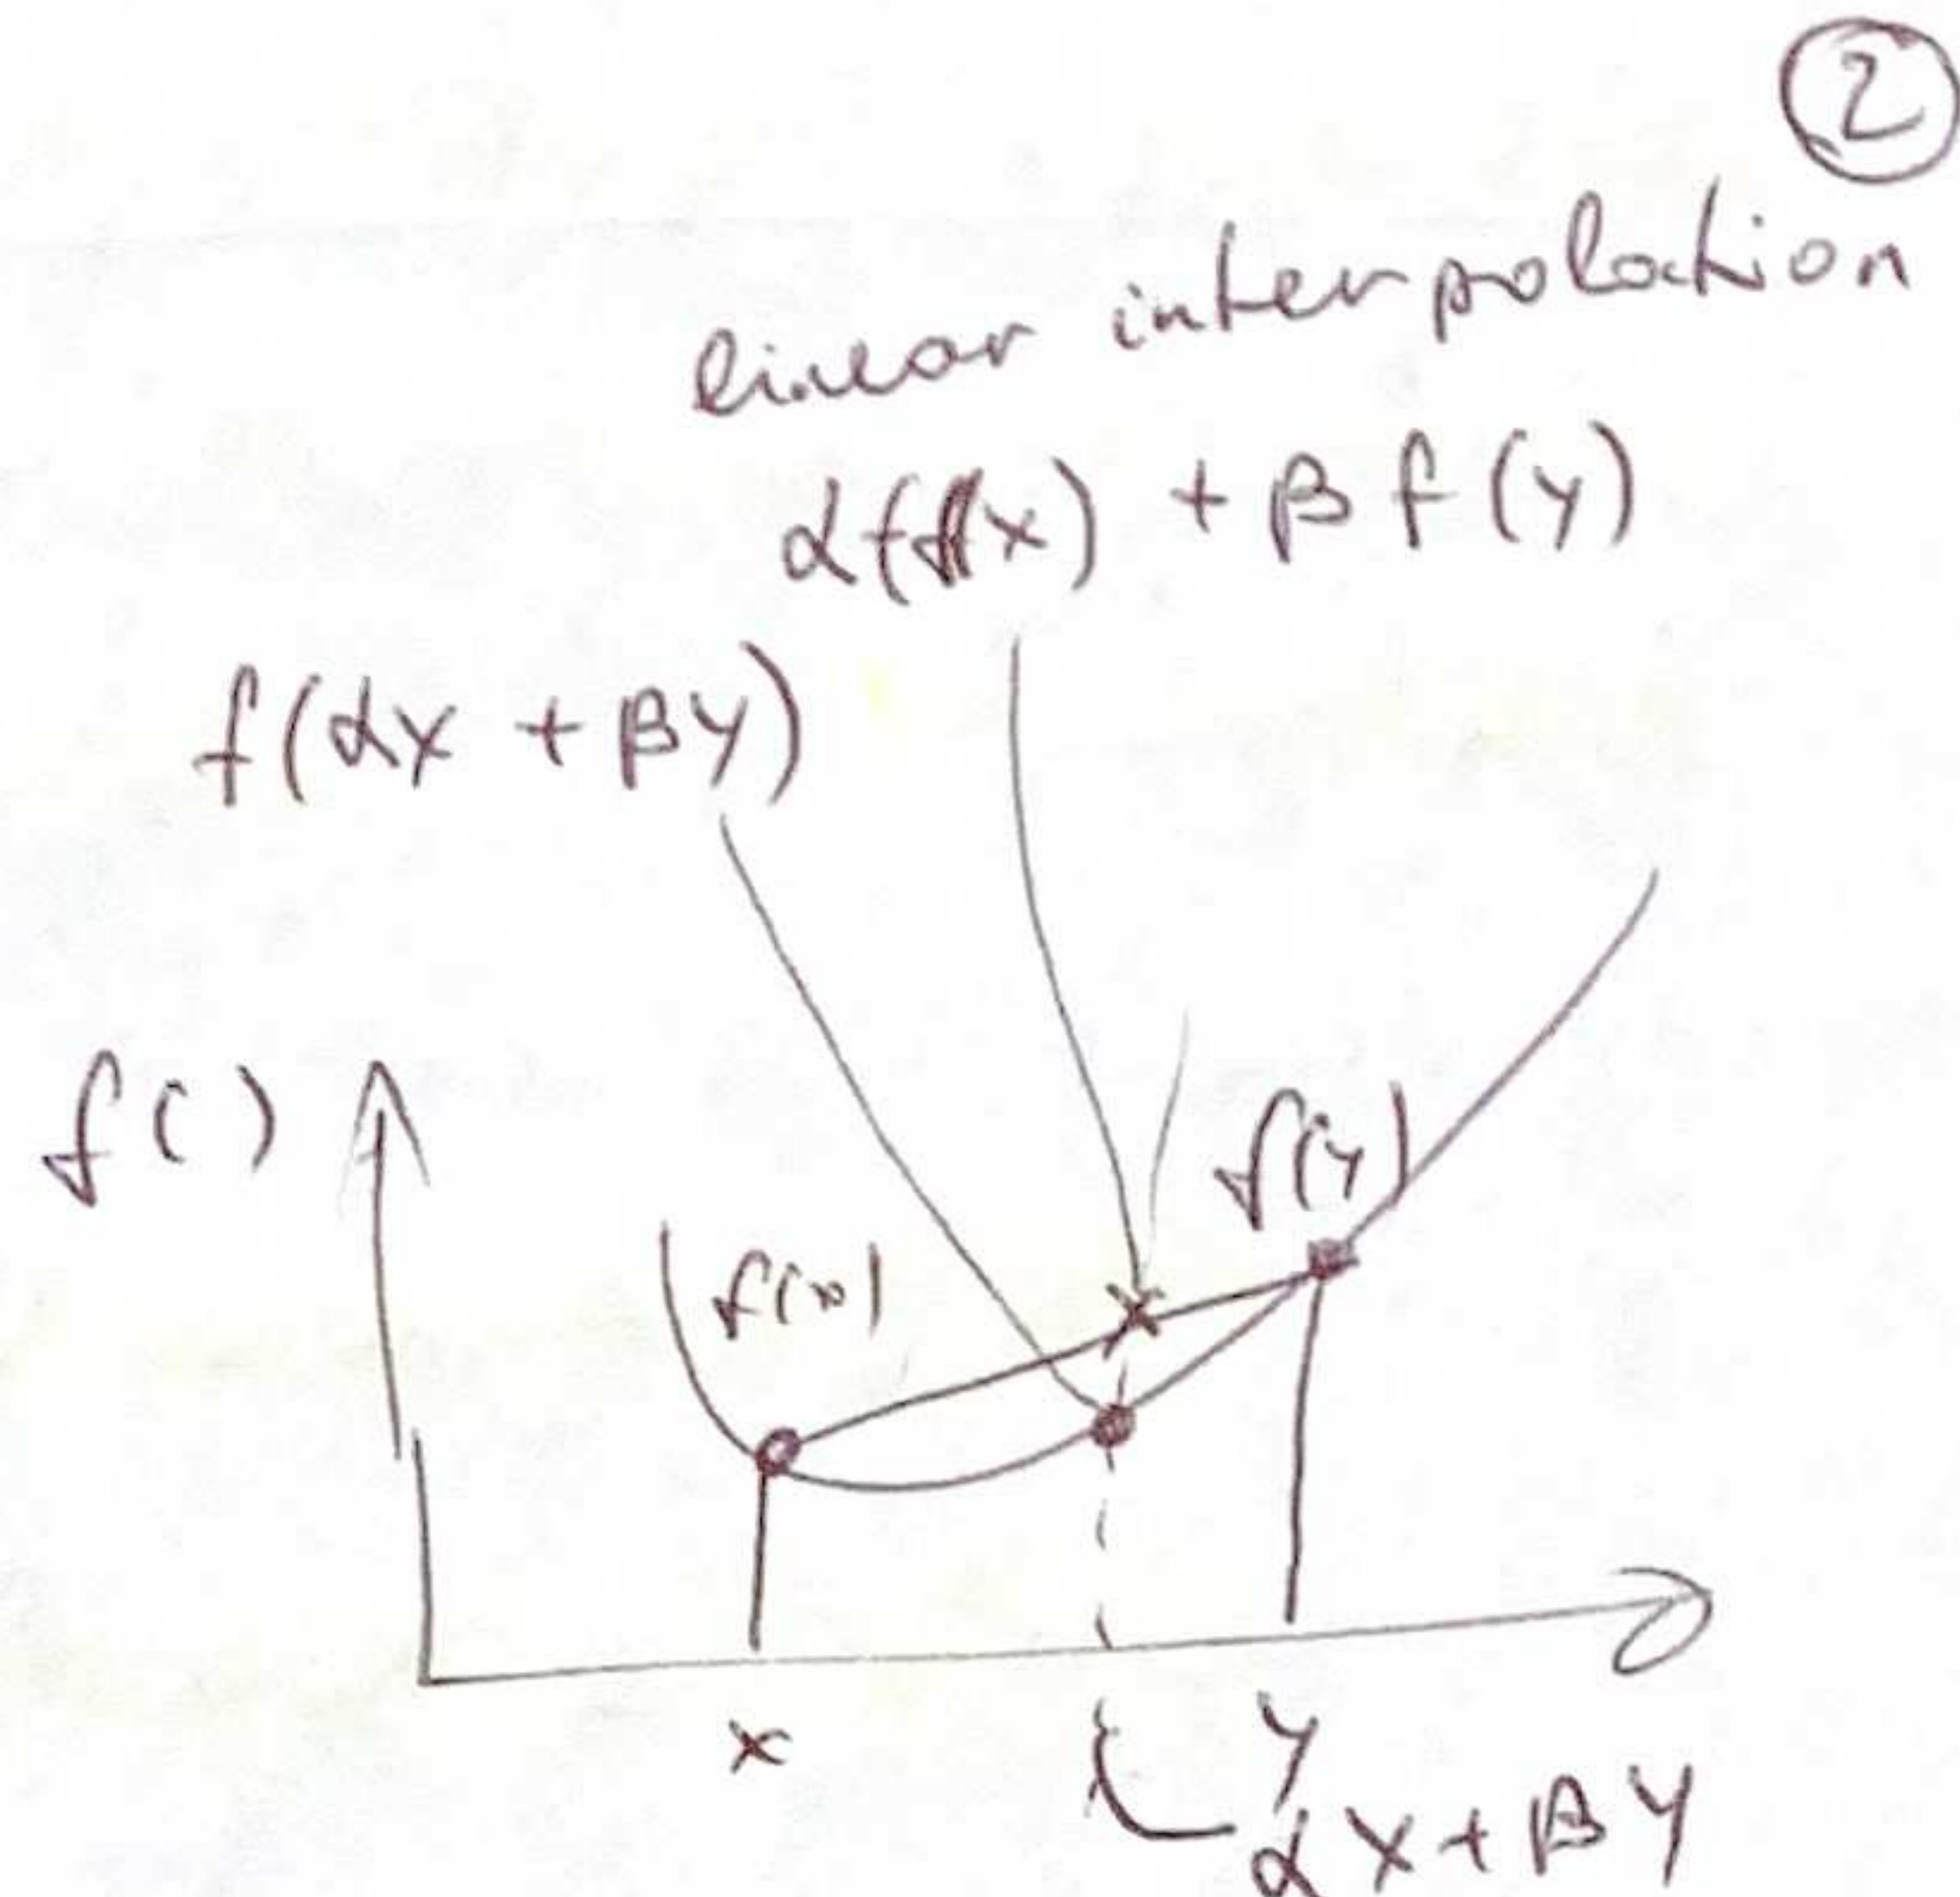 2
linear interpolation
αf(x) + β f(y)
f(αx + βy)
f( )
f(y)
f(x)
x
y
αx + βy